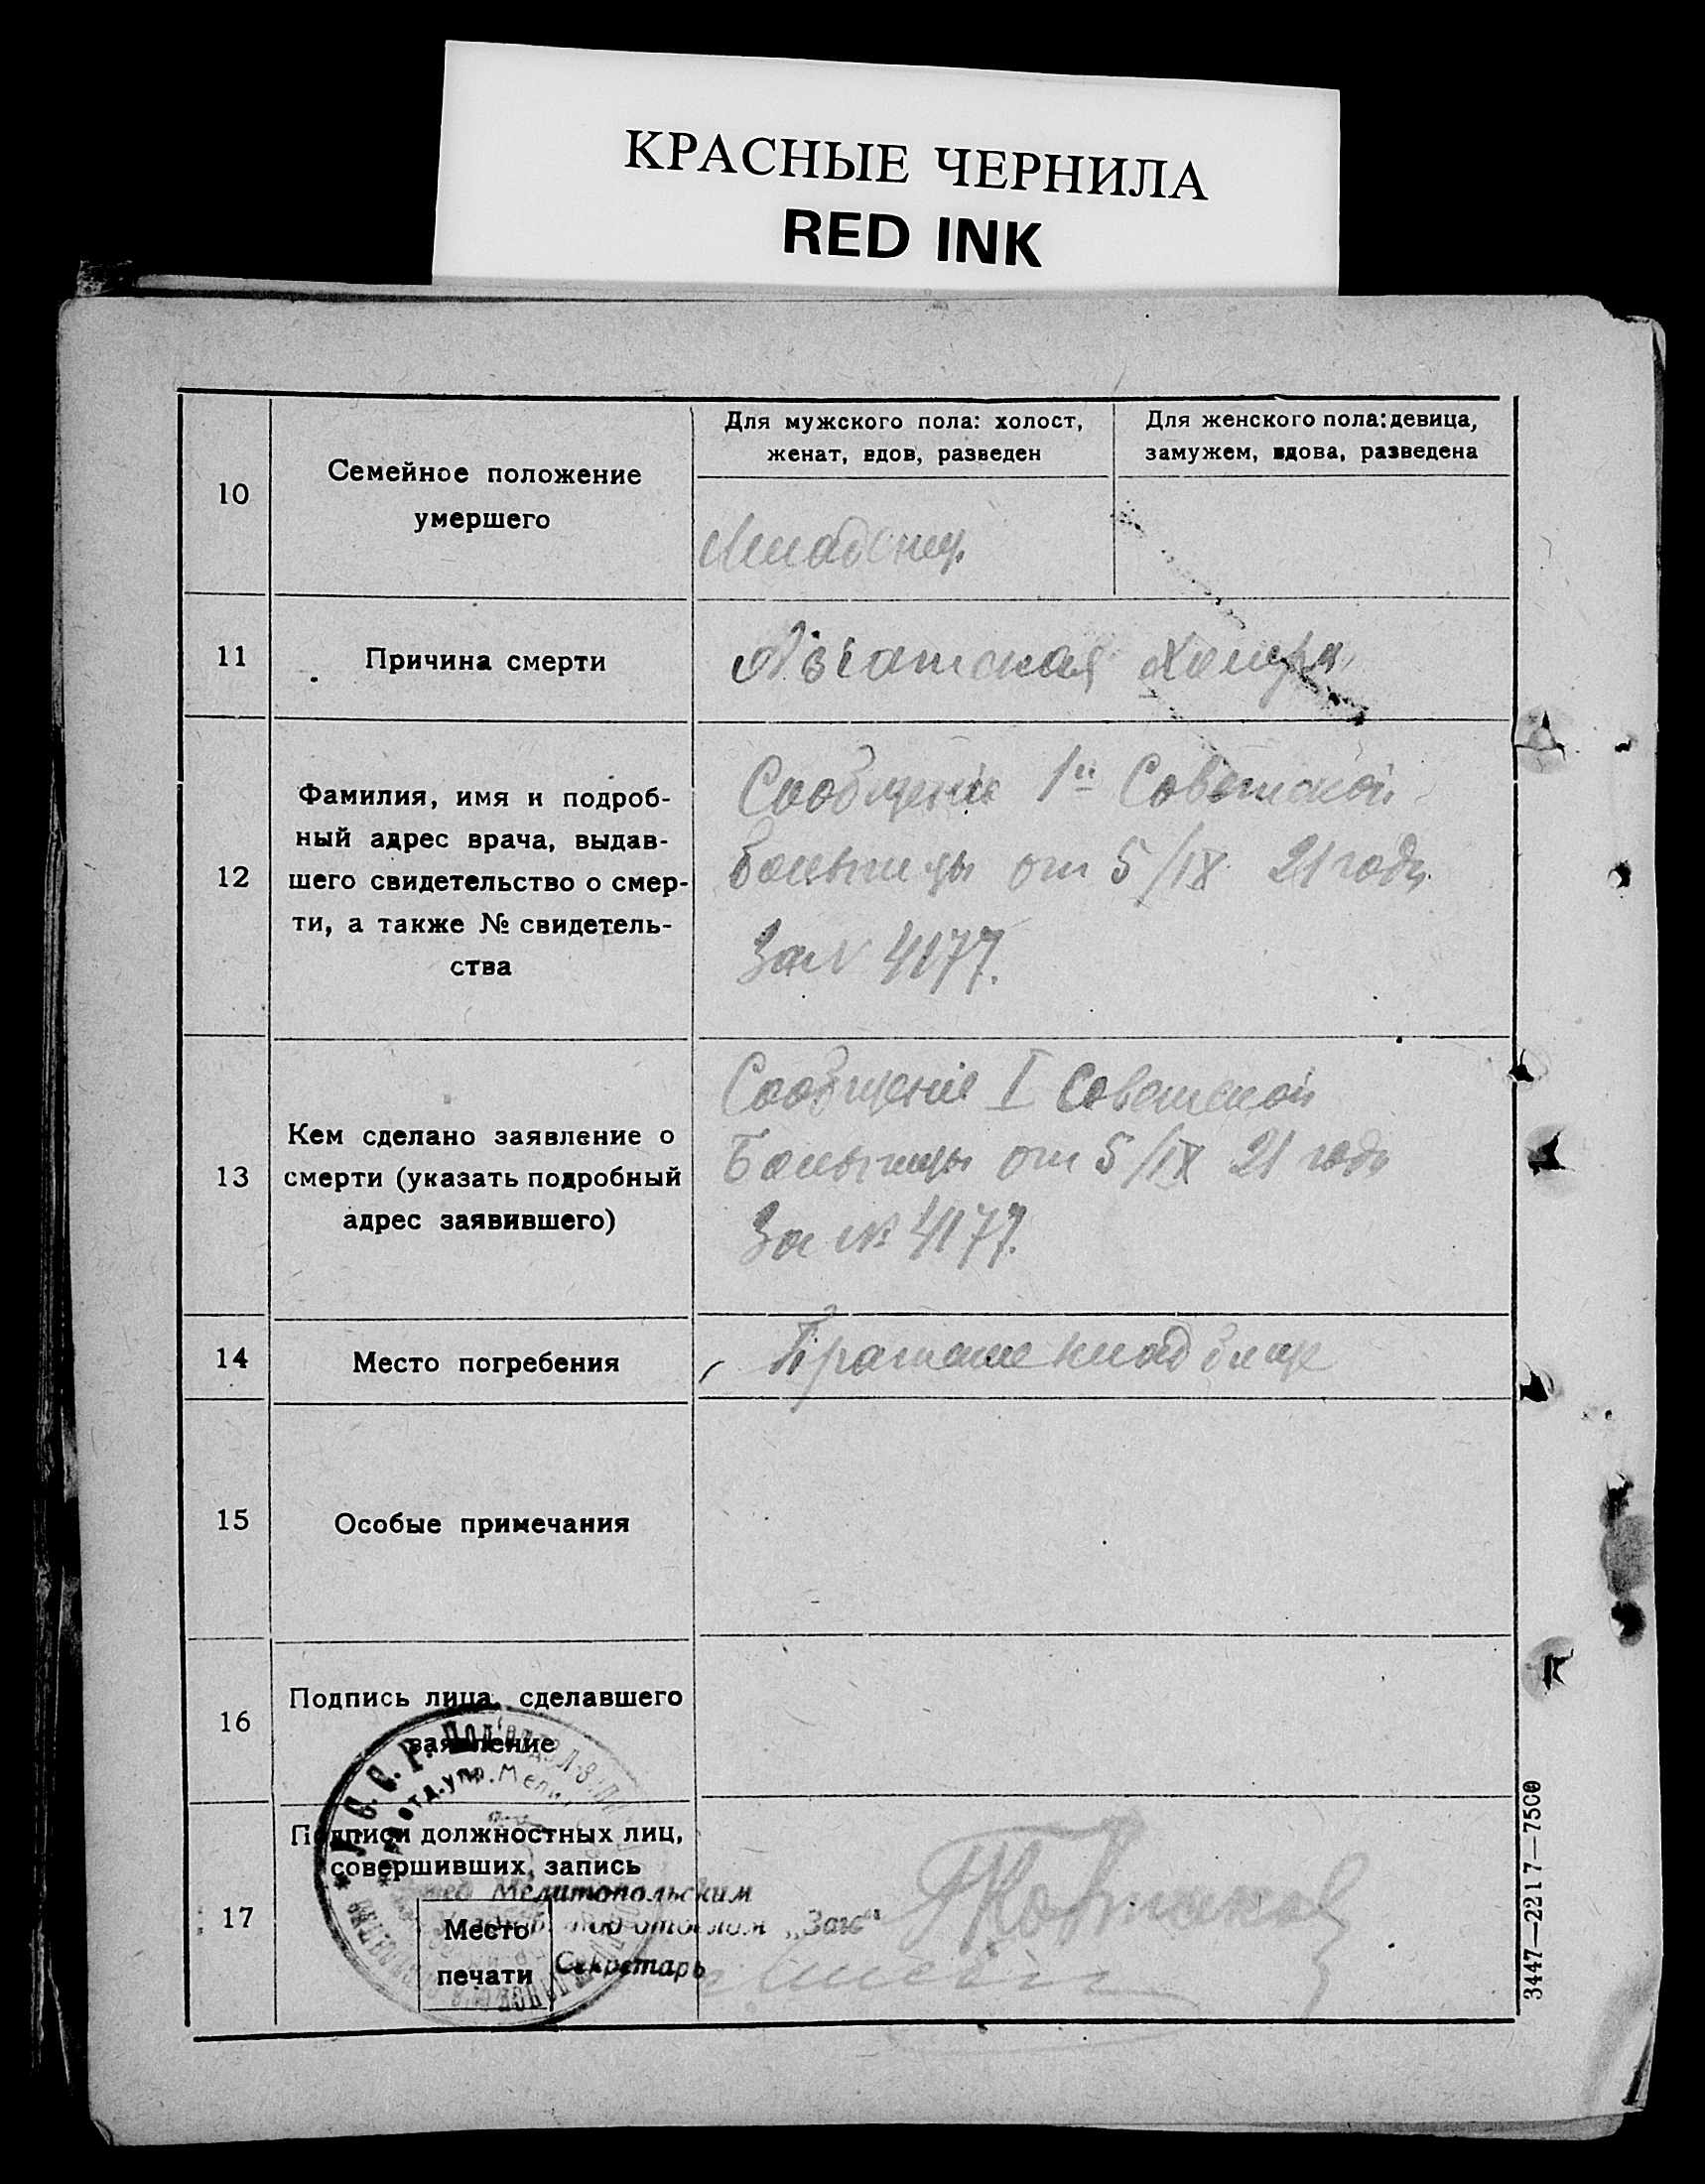 КРАСНЫЕ ЧЕРНИЛА
RED INK
10
Семейное положение
умершего
Для мужского пола: холост,
женат, вдов, разведен
Для женского пола: девица,
замужем, вдова, разведена
Младенец
11
Причина смерти
Азіатская Холера
12
Фамилия, имя и подроб-
ный адрес врача, выдав-
шего свидетельство о смер-
ти, а также № свидетель-
ства
Сообщеніе 1й Советской
больницы от 5/IX 21 года
За N 4177.
13
Кем сделано заявление о
смерти (указать подробный
адрес заявившего)
Сообщеніе I Советской
Больницы от 5/IX 21 года
За № 4177.
14
Место погребения
Братское кладбище
15
Особые примечания
16
Подпись лица, сделавшего
заявление
17
Подписи должностных лиц,
совершивших запись
Место
печати
Мелитопольским
под отделом „Загс"
Секретарь
3447—2217—7500